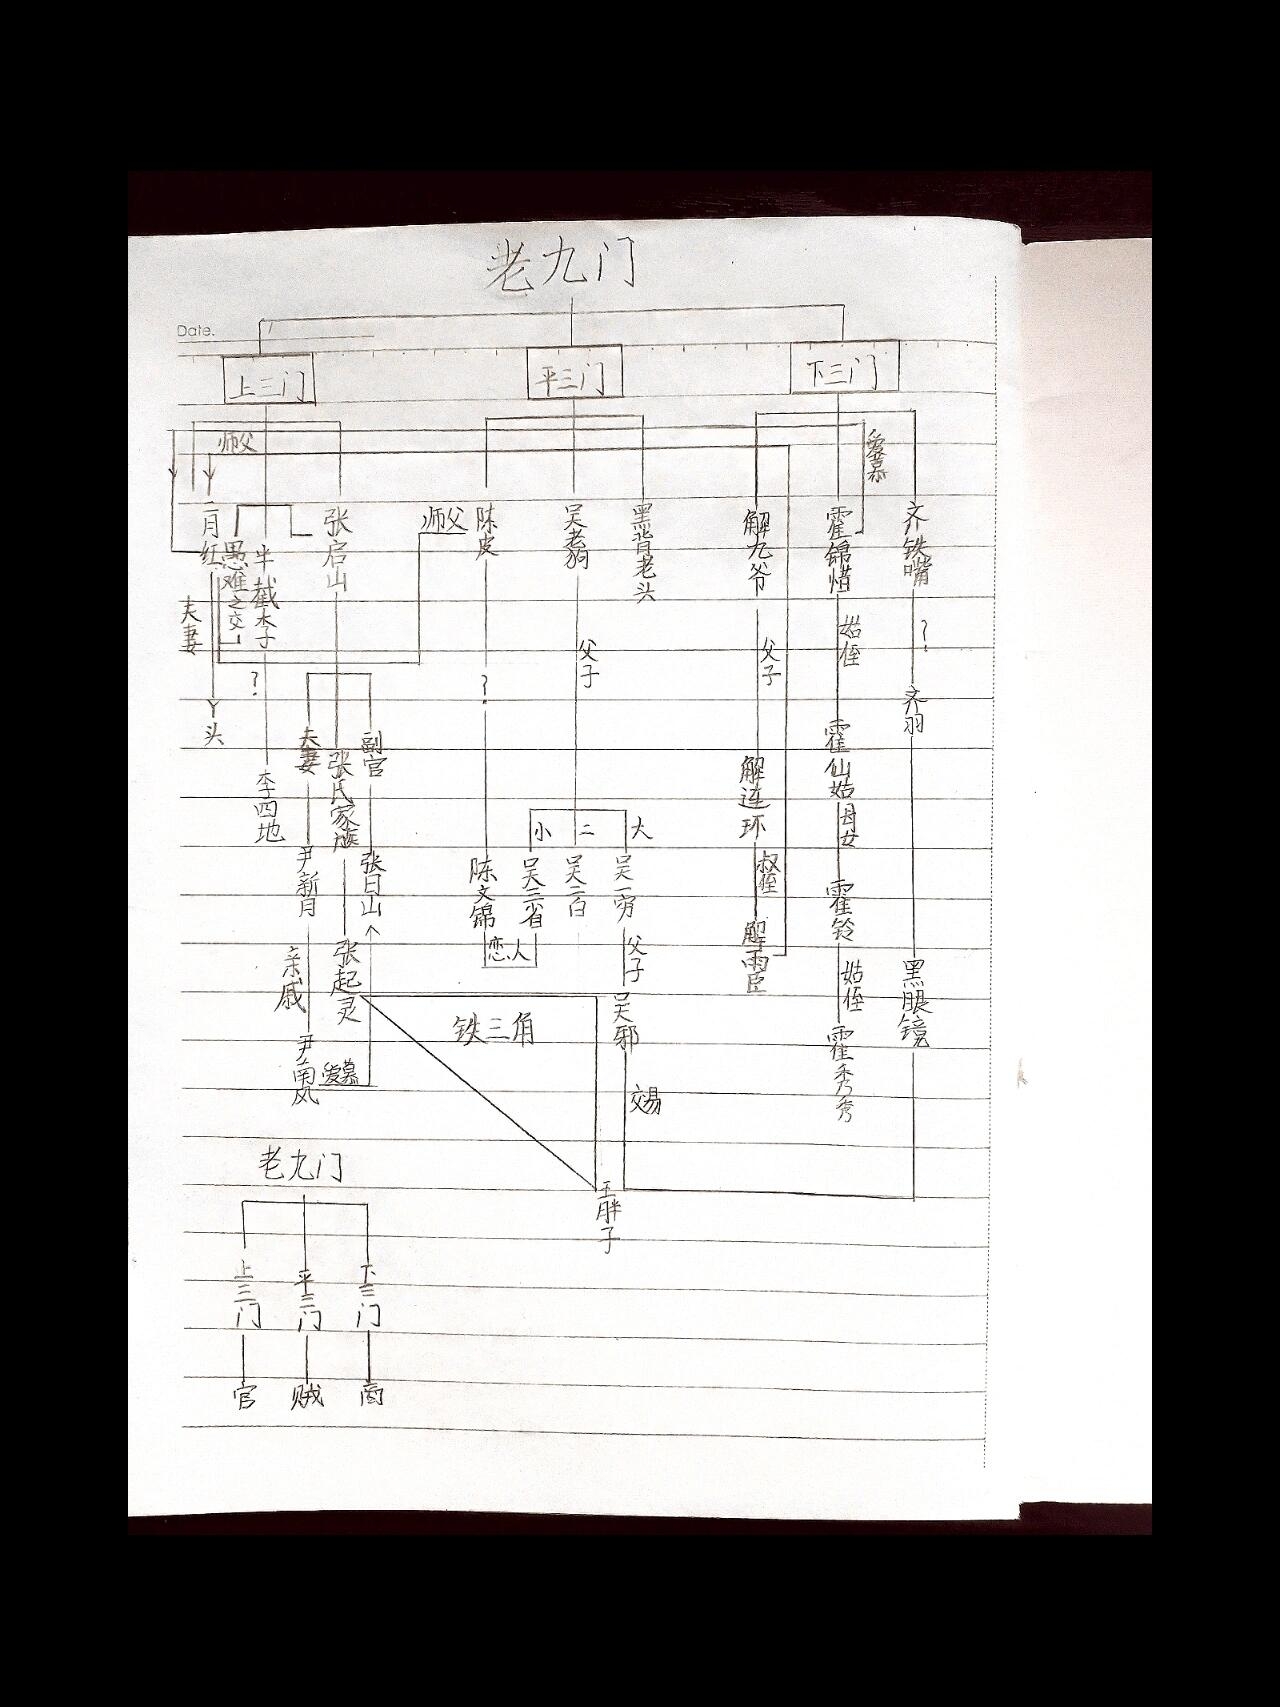 老九门
Date.
上三门
平三门
下三门
师父
爱慕
二月红
愚难之交
半截李
张启山
师父
陈皮
吴老狗
黑背老头
解九爷
霍锦惜
齐铁嘴
夫妻
?
?
父子
父子
姑侄
?
丫头
李四地
夫妻
张氏家族
副官
小
二
大
解连环
霍仙姑
母女
齐羽
尹新月
张日山
陈文锦
吴三省
吴二白
吴一穷
叔侄
霍铃
恋人
父子
解雨臣
姑侄
黑眼镜
亲戚
张起灵
铁三角
吴邪
霍秀秀
尹南风
爱慕
交易
王胖子
老九门
上三门
平三门
下三门
官
贼
商